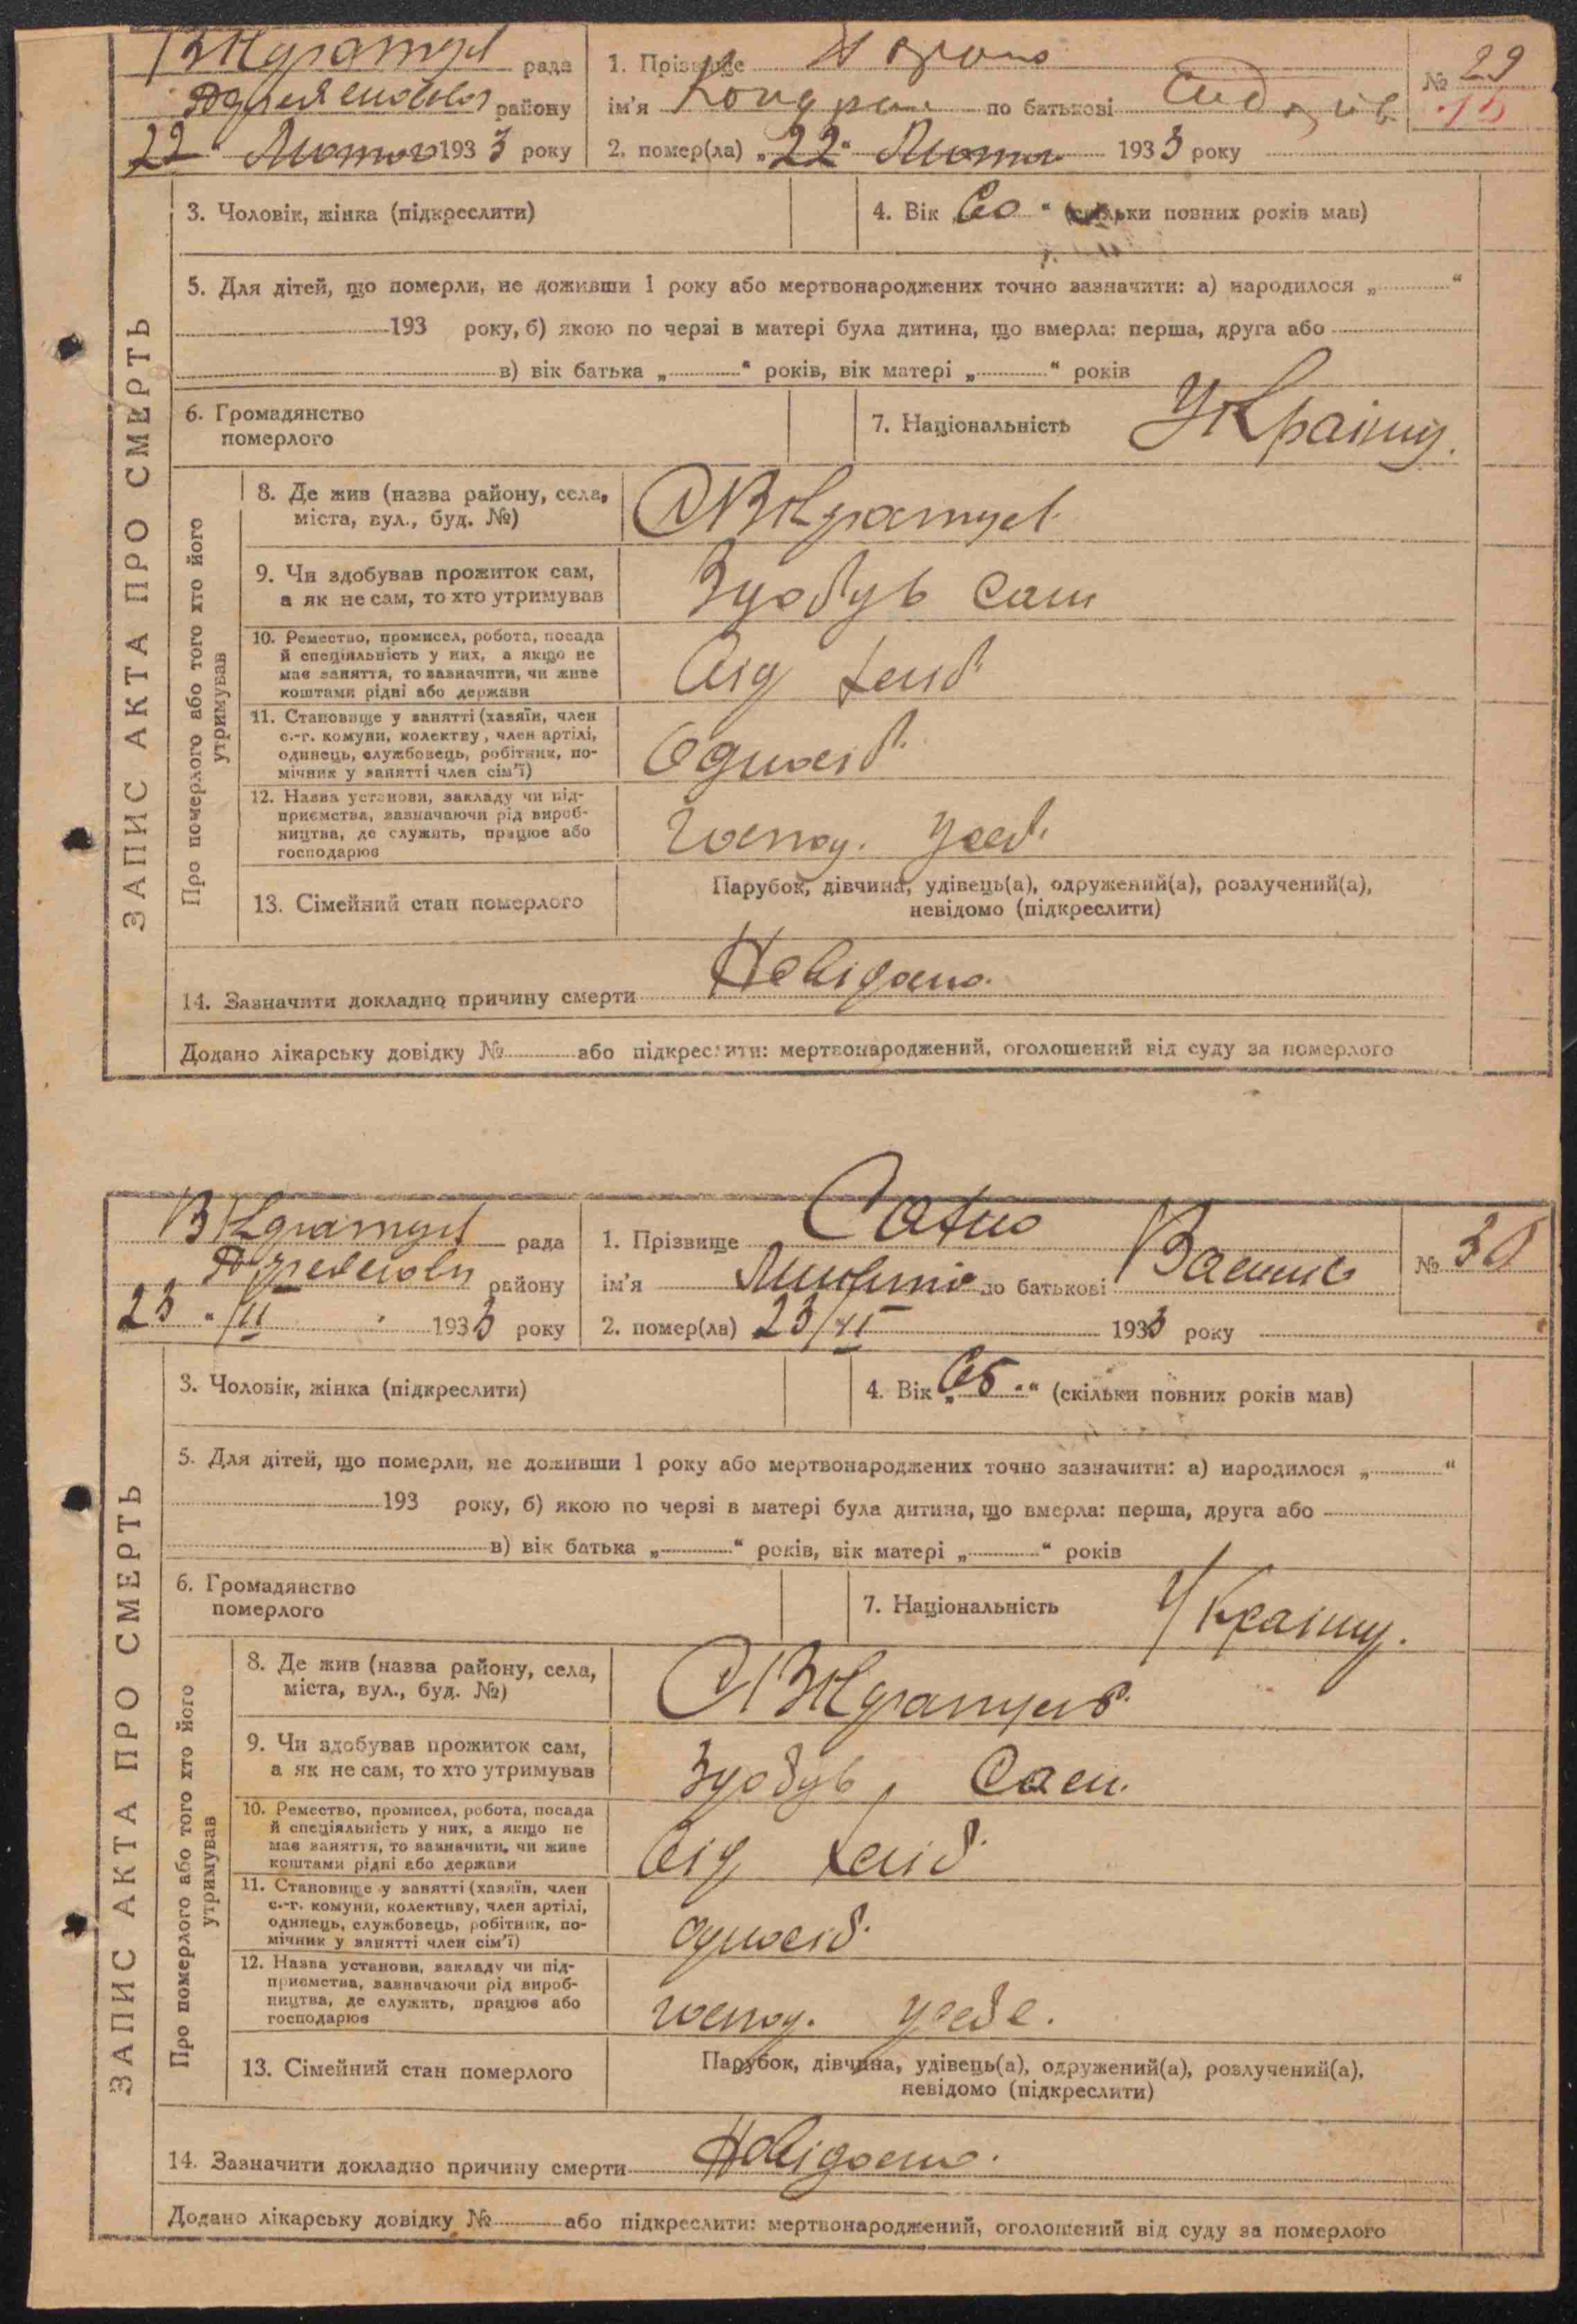 рада
району
22 " Лютого 1933 року
1. Прізвище
ім'я Кондрат по батькові
2. помер(ла) „22" Лютого 1933 року
№ 29
3. Чоловік, жінка (підкреслити)
4. Вік „60" (скільки повних років мав)
5. Для дітей, що померли, не доживши 1 року або мертвонароджених точно зазначити: а) народилося „ "
193 року, б) якою по черзі в матері була дитина, що вмерла: перша, друга або
в) вік батька „ " років, вік матері „ " років
6. Громадянство
померлого
7. Національність Україну.
ЗАПИС АКТА ПРО СМЕРТЬ
Про померлого або того хто його
утримував
8. Де жив (назва району, села,
міста, вул., буд. №)
9. Чи здобував прожиток сам,
а як не сам, то хто утримував
Здобув сам
10. Ремество, промисел, робота, посада
й спеціяльність у них, а якщо не
має заняття, то зазначити, чи живе
коштами рідні або держави
11. Становище у занятті (хазяїн, член
с.-г. комуни, колектву, член артілі,
одинець, службовець, робітник, по-
мічник у занятті член сім'ї)
Одноосіб.
12. Назва установи, закладу чи під-
приємства, зазначаючи рід вироб-
ництва, де служить, працює або
господарює
господ. у себ.
13. Сімейний стан померлого
Парубок, дівчина, удівець(а), одружений(а), розлучений(а),
невідомо (підкреслити)
14. Зазначити докладно причину смерти Невідомо.
Додано лікарську довідку № або підкреслити: мертвонароджений, оголошений від суду за померлого
рада
району
23 " /II 1933 року
1. Прізвище
ім'я по батькові
2. помер(ла) 23/II 1933 року
№ 30
3. Чоловік, жінка (підкреслити)
4. Вік „65" (скільки повних років мав)
5. Для дітей, що померли, не доживши 1 року або мертвонароджених точно зазначити: а) народилося „ "
193 року, б) якою по черзі в матері була дитина, що вмерла: перша, друга або
в) вік батька „ " років, вік матері „ " років
6. Громадянство
померлого
7. Національність Україну.
ЗАПИС АКТА ПРО СМЕРТЬ
Про померлого або того хто його
утримував
8. Де жив (назва району, села,
міста, вул., буд. №)
9. Чи здобував прожиток сам,
а як не сам, то хто утримував
Здобув сам.
10. Ремество, промисел, робота, посада
й спеціяльність у них, а якщо не
має заняття, то зазначити, чи живе
коштами рідні або держави
11. Становище у занятті (хазяїн, член
с.-г. комуни, колективу, член артілі,
одинець, службовець, робітник, по-
мічник у занятті член сім'ї)
одноосіб.
12. Назва установи, закладу чи під-
приємства, зазначаючи рід вироб-
ництва, де служить, працює або
господарює
господ. у себе.
13. Сімейний стан померлого
Парубок, дівчина, удівець(а), одружений(а), розлучений(а),
невідомо (підкреслити)
14. Зазначити докладно причину смерти Невідомо.
Додано лікарську довідку № або підкреслити: мертвонароджений, оголошений від суду за померлого